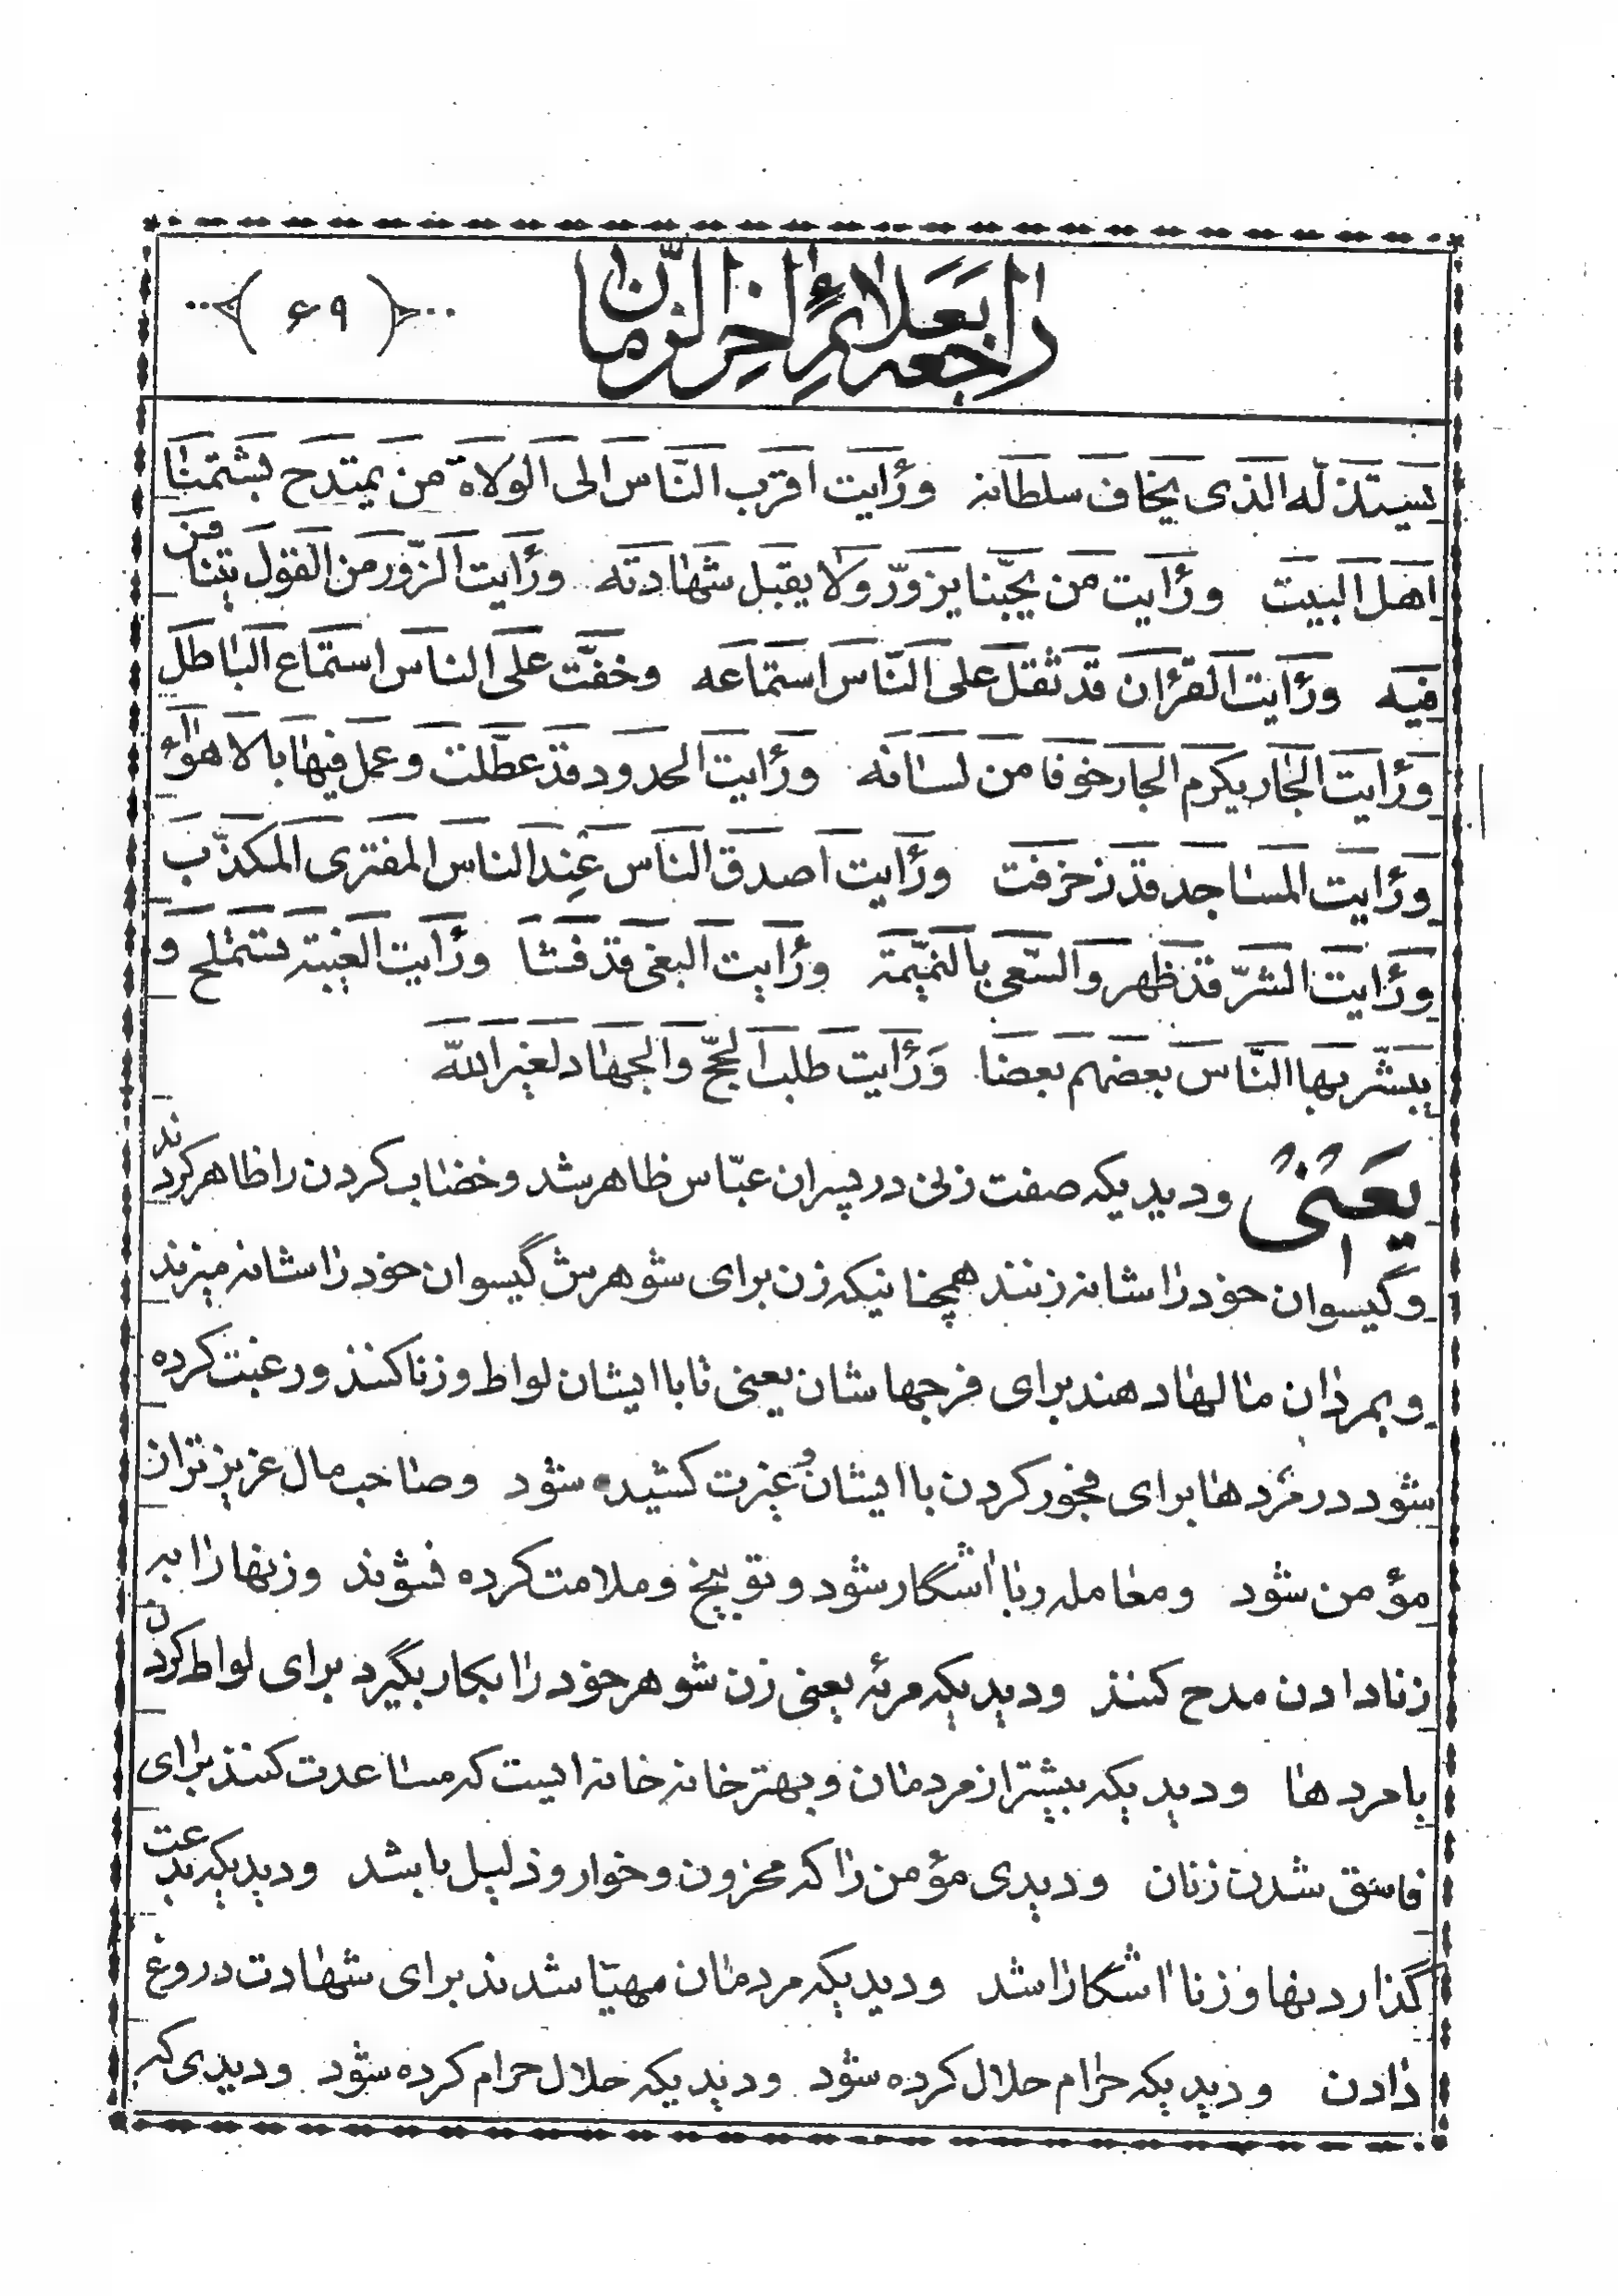 راجعه بعلائم اخر الزمان
﴿ ۶۹ ﴾
یستذلّه الذی یخاف سلطانه ورأیت اقرب النّاس الی الولاة من یمتدح بشتمنا
اهل البیت ورأیت من یحبّنا یزوّر ولا یقبل شهادته ورأیت الزّور من القول یتنافس
فیه ورأیت القرأن قد ثقل علی النّاس استماعه وخفّت علی الناس استماع الباطل
ورأیت الجار یکرم الجار خوفا من لسانه ورأیت الحدود قد عطّلت وعمل فیها بالاهواء
ورأیت المساجد قد زخرفت ورأیت اصدق الناس عند الناس المفتری المکذّب
ورأیت الشرّ قد ظهر والسّعی بالنمیّمة ورأیت البغی قد فشا ورأیت الغیبة تستملح و
یبشّر بها النّاس بعضهم بعضا ورأیت طلب الحجّ والجهاد لغیر اللّه
یعنی و دیدیکه صفت زنی در پسران عبّاس ظاهر شد و خضاب کردن را ظاهر کردند
و گیسوان خود را شانه زنند همچنانیکه زن برای شوهرش گیسوان خود را شانه میزند
و بمردان مالها دهند برای فرجهاشان یعنی تا با ایشان لواط و زنا کنند و رغبت کرده
شود در مردها برای فجور کردن با ایشان و غیرت کشیده شود و صاحب مال عزیزتر از
مؤمن شود و معامله ربا اشکار شود و توبیخ و ملامت کرده نشوند و زنها را به
زنا دادن مدح کنند و دیدیکه مرئه یعنی زن شوهر خود را بکار بگیرد برای لواط کردن
با مردها و دیدیکه بیشتر از مردمان و بهتر خانه خانه ایست که مساعدت کنند برای
فاسق شدن زنان و دیدی مؤمن را که محزون و خوار و ذلیل باشد و دیدیکه بدعت
گذاردنها و زنا اشکارا شد و دیدیکه مردمان مهیّا شدند برای شهادت دروغ
دادن و دیدیکه حرام حلال کرده شود و دیدیکه حلال حرام کرده شود و دیدی که